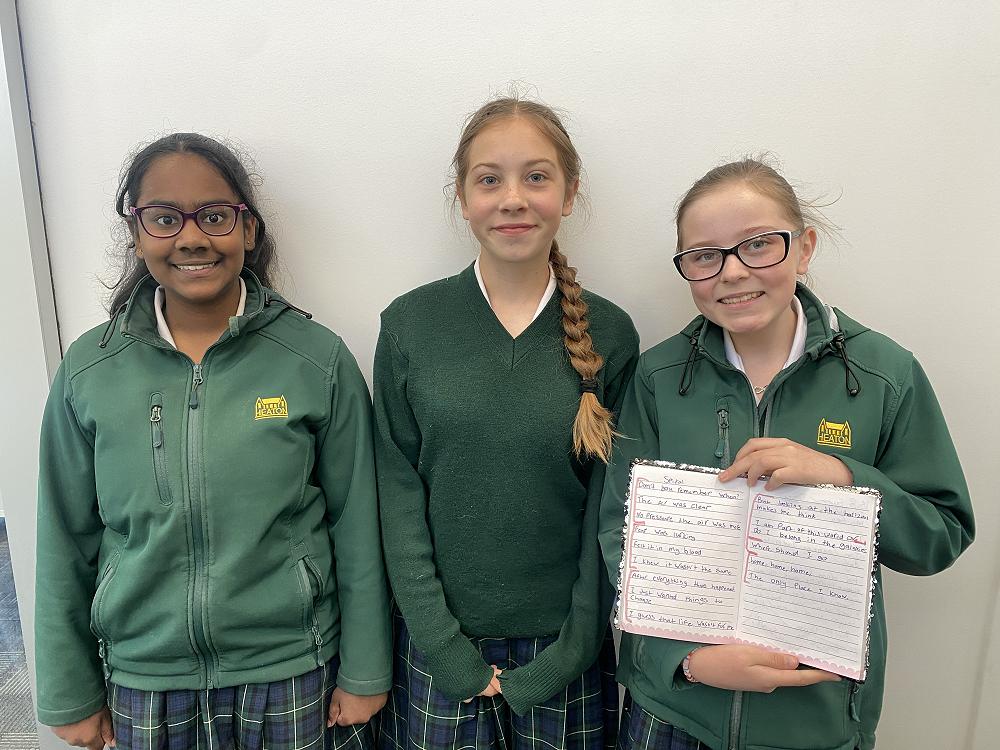 HEATON
HEATON
Spiral
Don't you remember when?
The air was clear
No pressure the air was
Fear was lurking
Felt it in my blood
I knew it wasn't the same
After everything that happened
I Just wanted things to
change
I guess that life wasn't for me
But looking at the horizon
makes me think
I am Part of this world
Do I belong in the galaxies
Where should I go?
home, home, home,
The only Place I know.